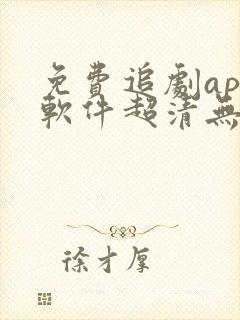 免費追劇ap
軟件超清無
徐才厚